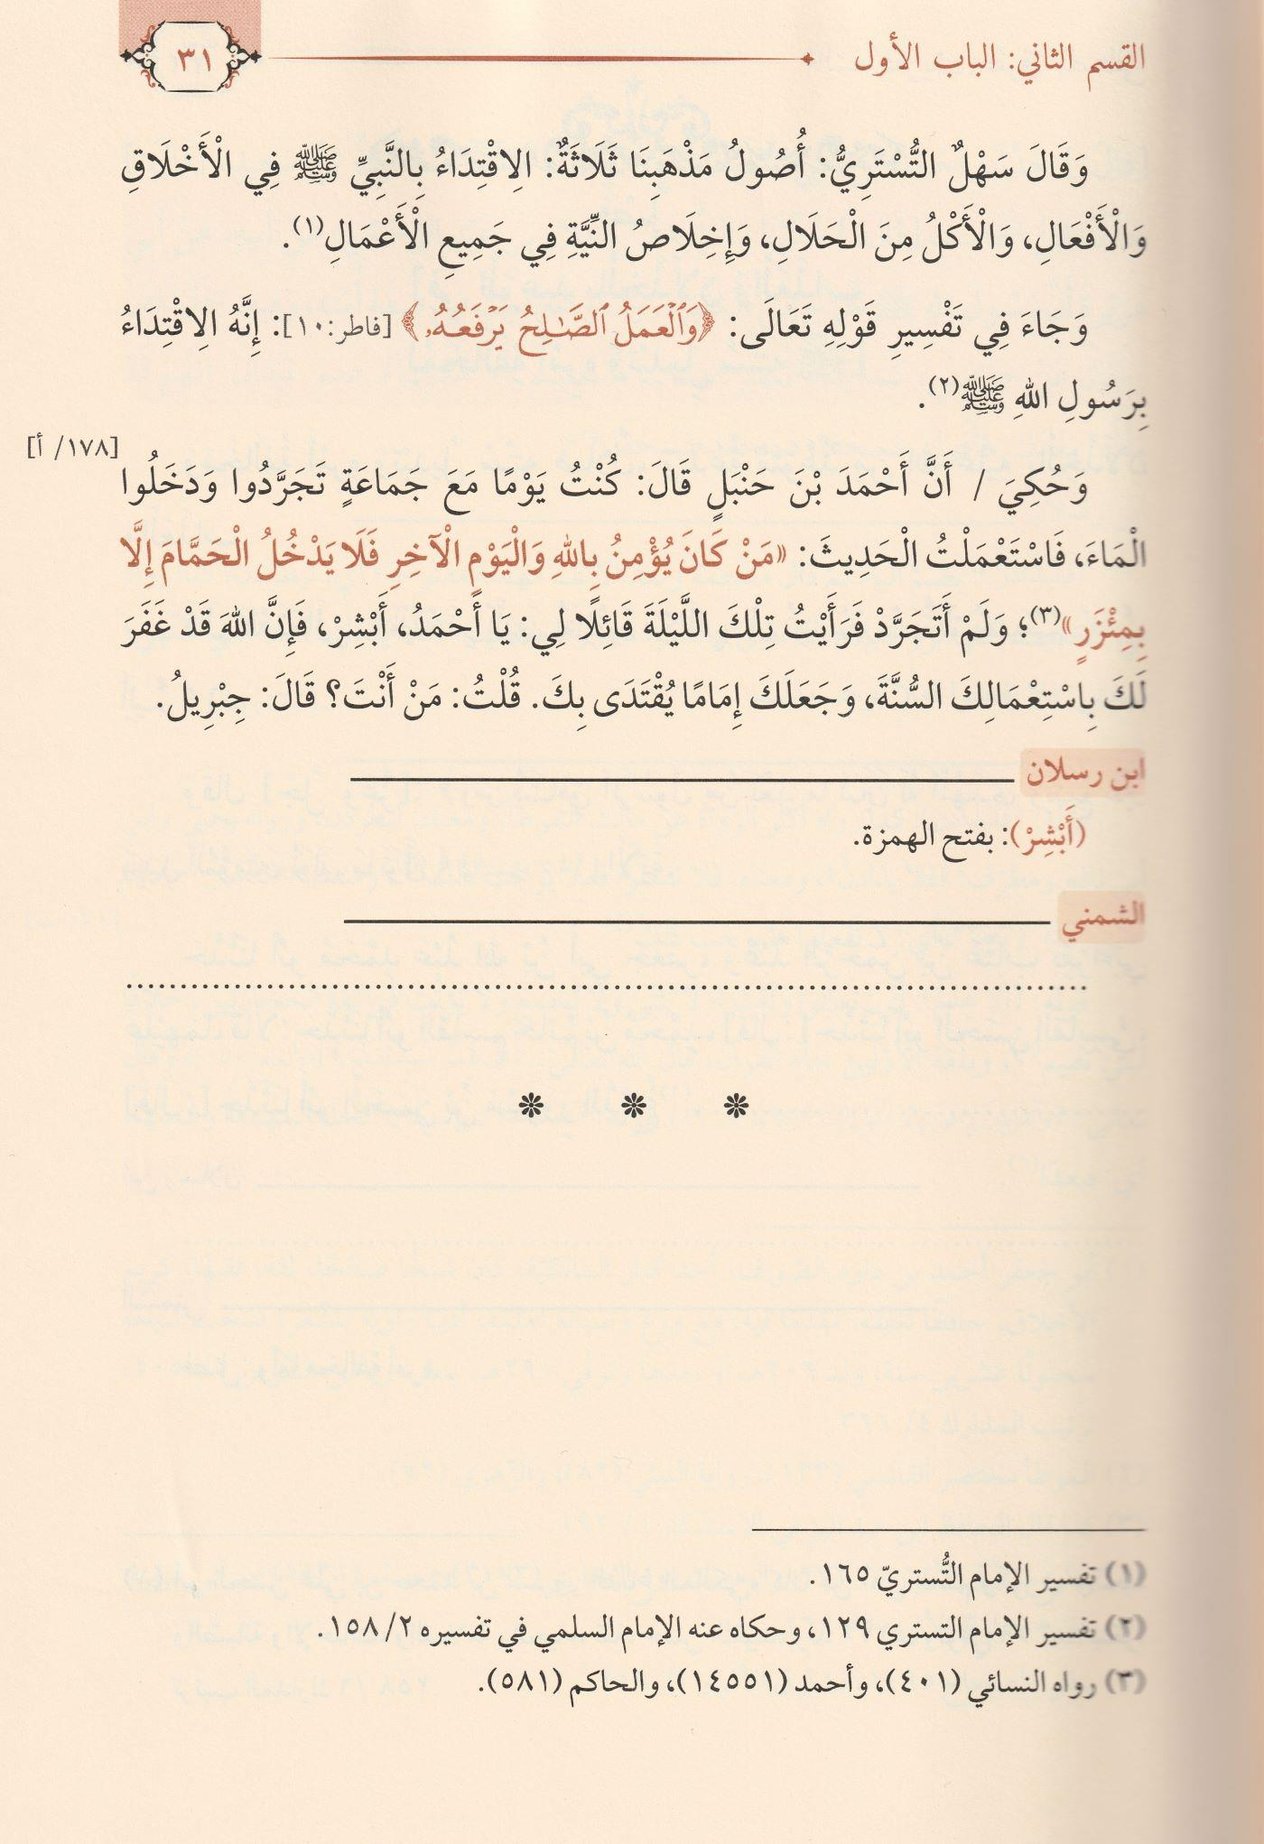 القسم الثاني: الباب الأول
٣١
وَقَالَ سَهْلٌ التُّسْتَرِيُّ: أُصُولُ مَذْهَبِنَا ثَلَاثَةٌ: الِاقْتِدَاءُ بِالنَّبِيِّ ﷺ فِي الْأَخْلَاقِ
وَالْأَفْعَالِ، وَالْأَكْلُ مِنَ الْحَلَالِ، وَإِخِلَاصُ النِّيَّةِ فِي جَمِيعِ الْأَعْمَالِ(١).
وَجَاءَ فِي تَفْسِيرِ قَوْلِهِ تَعَالَى: ﴿وَٱلْعَمَلُ ٱلصَّـٰلِحُ يَرْفَعُهُۥ﴾ [فاطر:١٠]: إِنَّهُ الِاقْتِدَاءُ
بِرَسُولِ اللهِ ﷺ(٢).
[١٧٨/ أ]
وَحُكِيَ / أَنَّ أَحْمَدَ بْنَ حَنْبَلٍ قَالَ: كُنْتُ يَوْمًا مَعَ جَمَاعَةٍ تَجَرَّدُوا وَدَخَلُوا
الْمَاءَ، فَاسْتَعْمَلْتُ الْحَدِيثَ: «مَنْ كَانَ يُؤْمِنُ بِاللهِ وَالْيَوْمِ الْآخِرِ فَلَا يَدْخُلُ الْحَمَّامَ إِلَّا
بِمِئْزَرٍ»(٣)؛ وَلَمْ أَتَجَرَّدْ فَرَأَيْتُ تِلْكَ اللَّيْلَةَ قَائِلًا لِي: يَا أَحْمَدُ، أَبْشِرْ، فَإِنَّ اللهَ قَدْ غَفَرَ
لَكَ بِاسْتِعْمَالِكَ السُّنَّةَ، وَجَعَلَكَ إِمَامًا يُقْتَدَى بِكَ. قُلْتُ: مَنْ أَنْتَ؟ قَالَ: جِبْرِيلُ.
ابن رسلان
(أَبْشِرْ): بفتح الهمزة.
الشمني
(١) تفسير الإمام التُّستريّ ١٦٥.
(٢) تفسير الإمام التستري ١٢٩، وحكاه عنه الإمام السلمي في تفسيره ٢/ ١٥٨.
(٣) رواه النسائي (٤٠١)، وأحمد (١٤٥٥١)، والحاكم (٥٨١).